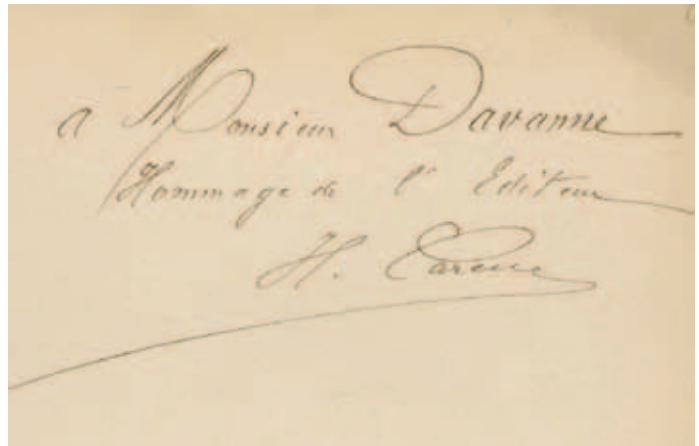 a Monsieur Davanne
Hommage de l' Editeur
H.